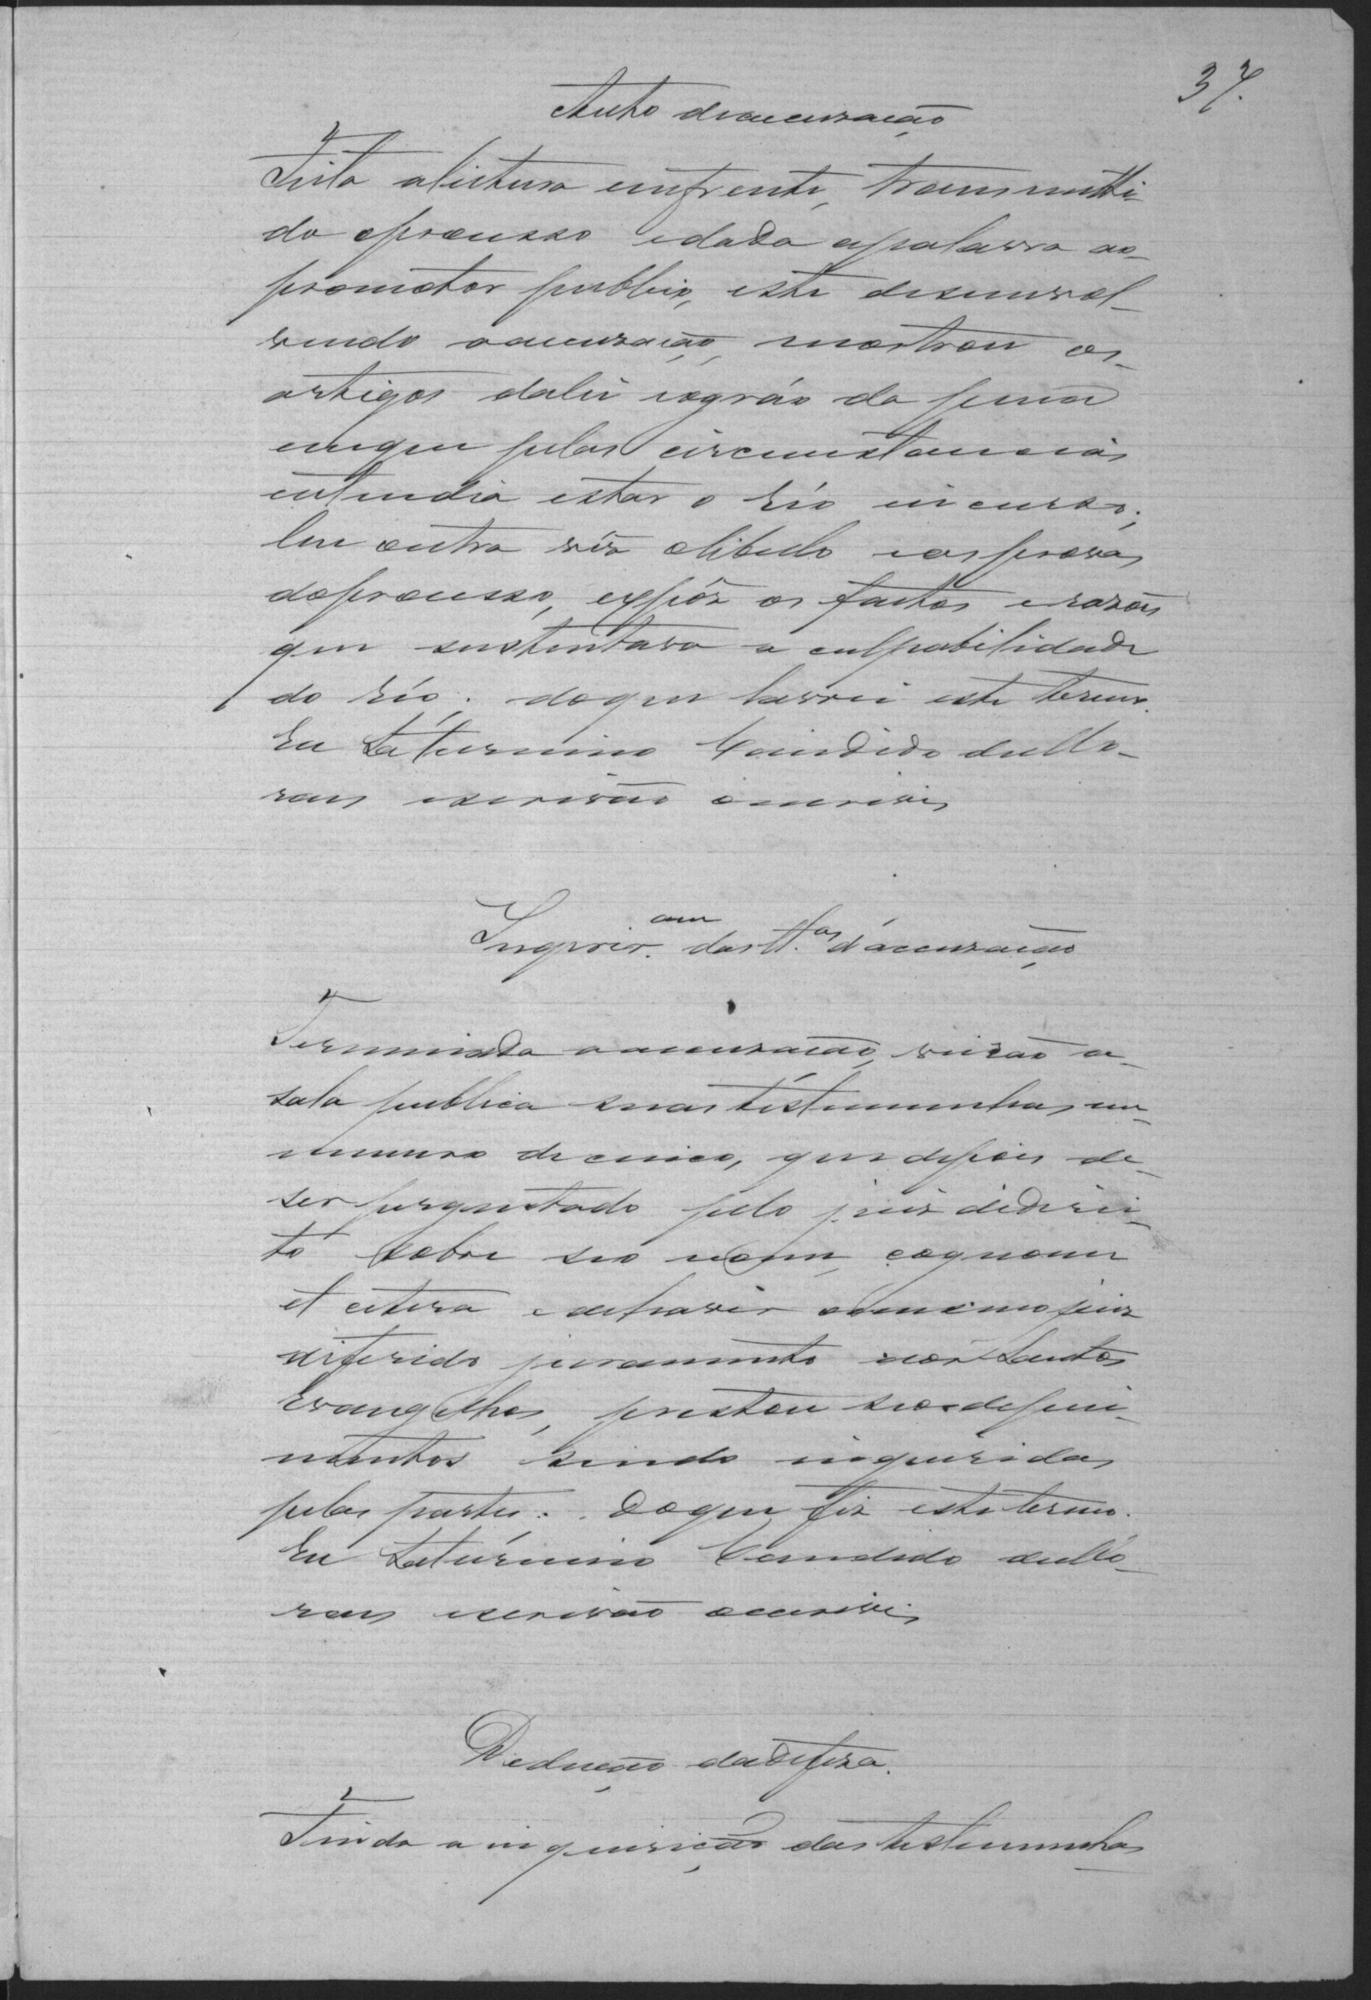 37.
Auto deaccusação
Feita aleitura emfrente, transmitti-
do oprocesso edada apalavra ao
promotor publico, este desenvol-
vendo aaccusação, mostrou os
artigos dalei eográo da pena
emque pelas circumstancias
entendia estar o réo incurso;
leu outra vez olibello easprovas
doprocesso, expôz os factos erazões
que sustentava a culpabilidade
do réo; doque lavrei este termo.
Eu Saturnino Candido deMo-
raes escrivão oescrevi
Inquir.am das tt.as d'accusação
Terminada aaccusação, viérão a
sala publica suas téstemunhas em
numero decinco, que depois de
ser perguntado pelo juiz dedirei-
to sobre seo nome, cognome
et cetera e dehaver omesmo juiz
diferido juramento aos Santos
Evangelhos, prestou seos depoi-
mentos sendo inqueridas
pelas partes. Doque fiz este termo.
Eu Saturnino Candido deMo-
raes escrivão oescrevi
Deducção dadefeza.
Finda a inquirição das testemunhas